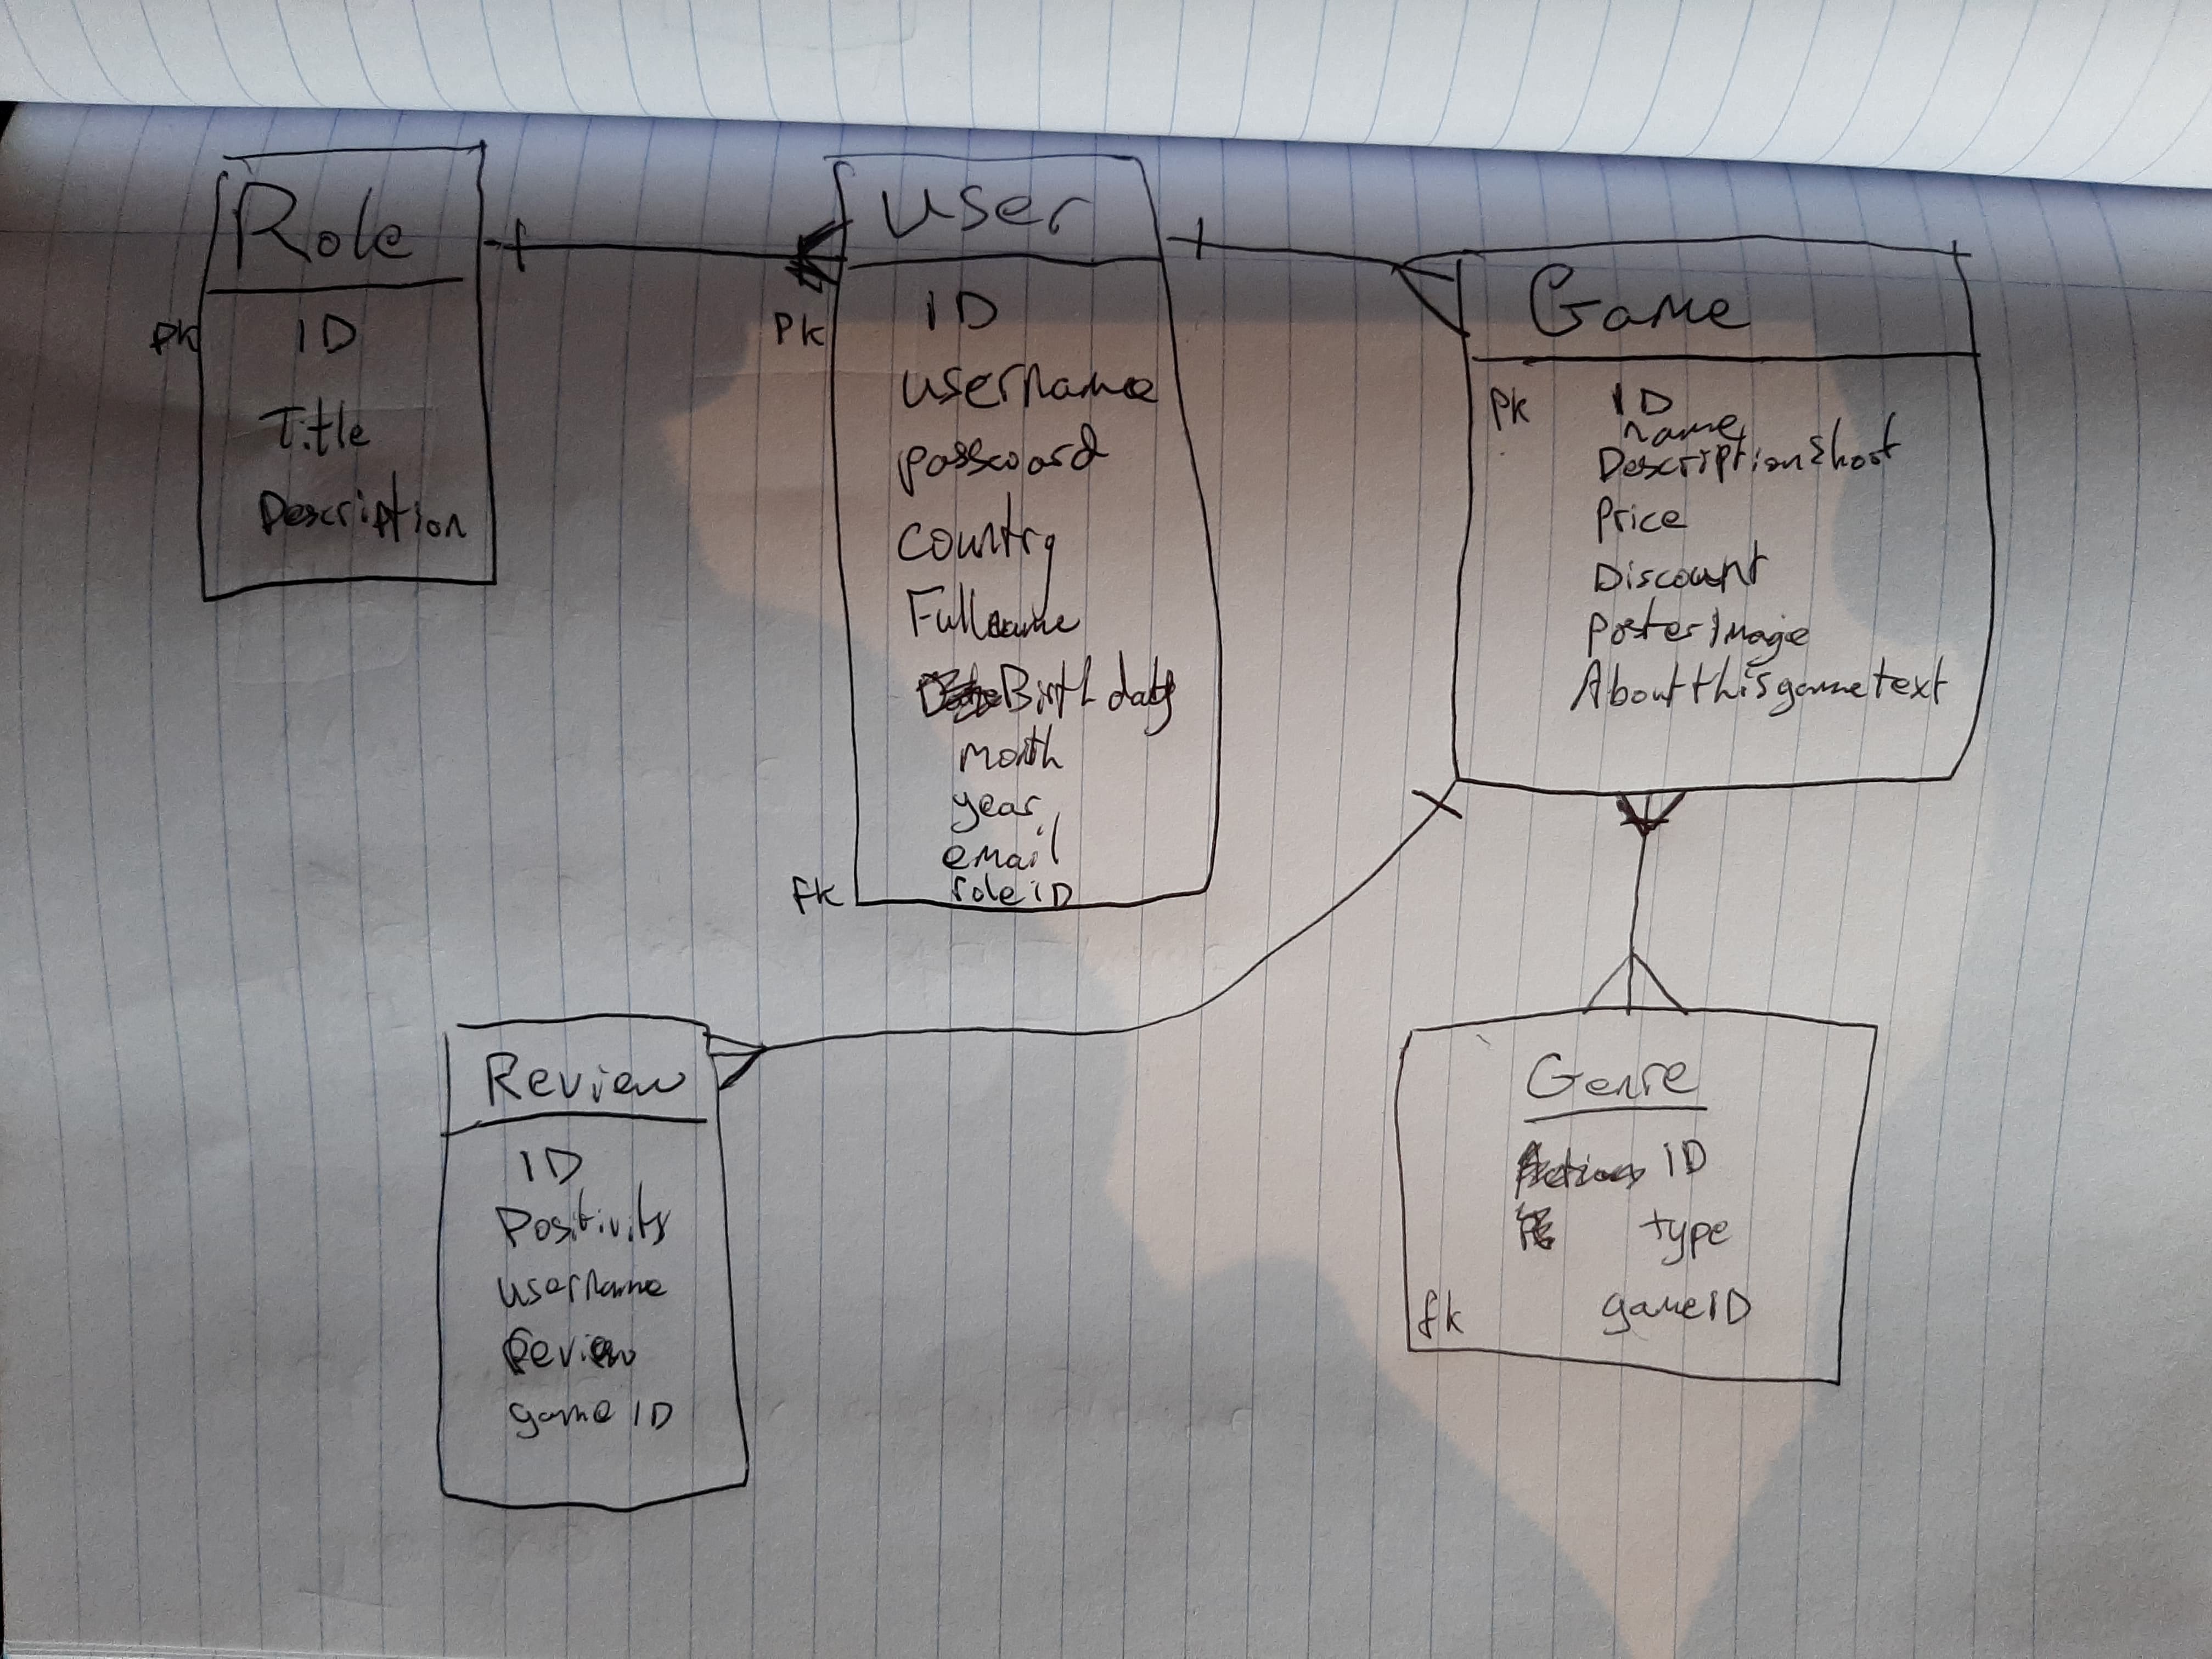 Role
PK ID
Title
Description
User
PK ID
username
password
country
Fullname
Birth day
month
year
email
FK roleiD
Game
PK ID
name
DescriptionShort
Price
Discount
PosterImage
Aboutthisgametext
Review
ID
Positivity
username
Review
game ID
Genre
ID
type
fk gameID